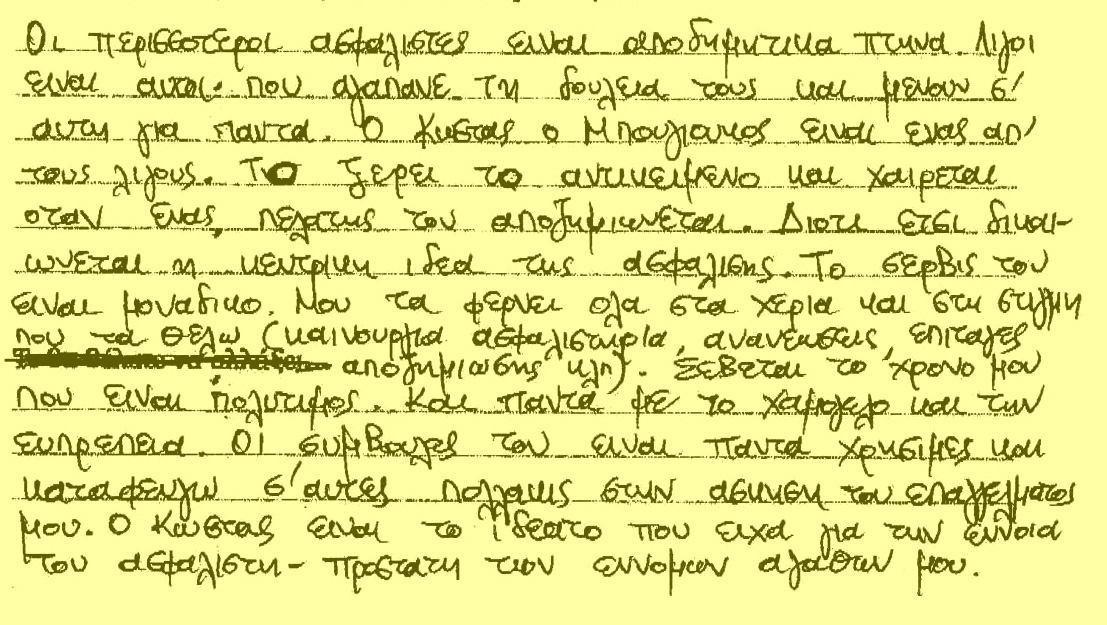 Οι περισσοτεροι ασφαλιστες ειναι αποδημητικα πτηνα. Λιγοι
ειναι αυτοι που αγαπανε τη δουλεια τους και μενουν σ'
αυτη για παντα. Ο Κωστας ο Μπουγιανος ειναι ενας απ'
τους λιγους. Το ξερει το αντικειμενο και χαιρεται
οταν ενας πελατης του αποζημιωνεται. Διοτι ετσι δικαι-
ωνεται η κεντρικη ιδεα της ασφαλισης. Το σερβις του
ειναι μοναδικο. Μου τα φερνει ολα στα χερια και στη στιγμη
που τα θελω (καινουργια ασφαλιστηρια, ανανεωσεις, επιταγες
αποζημιωσης κλπ). Σεβεται το χρονο μου
που ειναι πολυτιμος. Και παντα με το χαμογελο και την
ευπρεπεια. Οι συμβουλες του ειναι παντα χρησιμες και
καταφευγω σ'αυτες πολλακις στην ασκηση του επαγγελματος
μου. Ο Κωστας ειναι το ιδεατο που ειχα για την εννοια
του ασφαλιστη - προστατη των εννομων αγαθων μου.